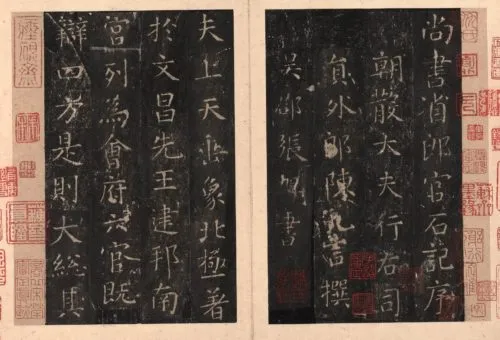 尚書省郎官石記序
朝散大夫行右司
員外郎陳九言撰
吳郡張旭書
夫上天垂象北極著
於文昌先王建邦南
宮列為會府六官既
辯四方是則大總其